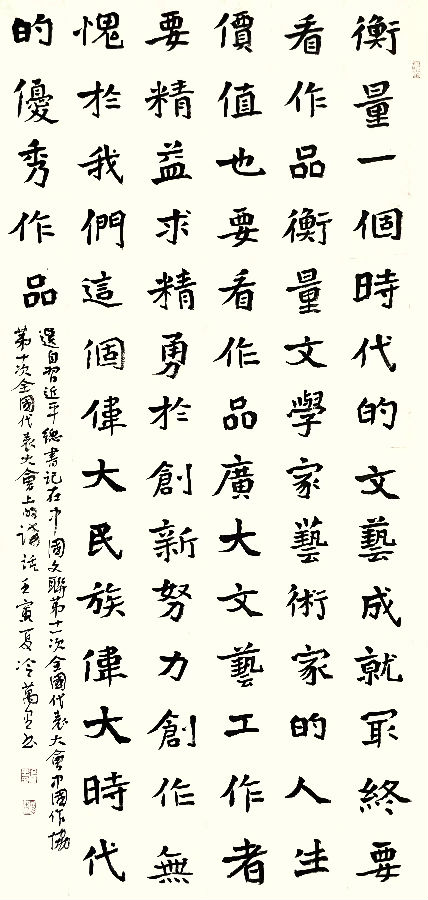 衡量一個時代的文藝成就最終要
看作品衡量文學家藝術家的人生
價值也要看作品廣大文藝工作者
要精益求精勇於創新努力創作無
愧於我們這個偉大民族偉大時代
的優秀作品
選自習近平總書記在中國文聯第十一次全國代表大會中國作協
第十次全國代表大會上的講話壬寅夏冷萬里书